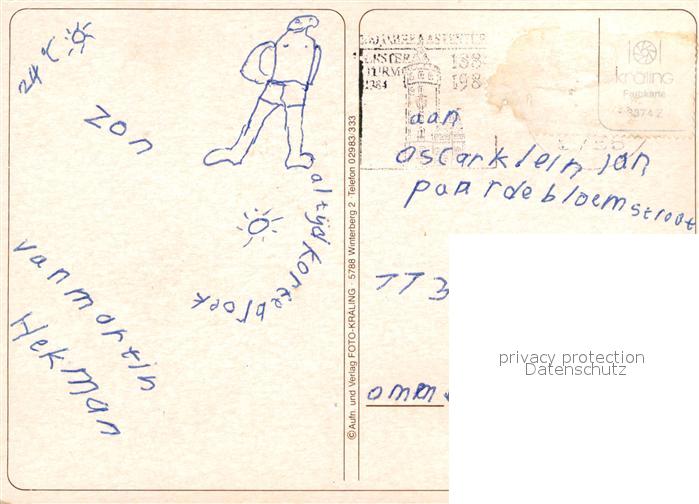 24°C
zon
altijd kortebroek
van martin
Hekman
© Aufn. und Verlag FOTO-KRALING · 5788 Winterberg 2 · Telefon 02983/333
1984
kraling
Farbkarte
aan
oscarkleinjan
paardebloemstraat
113
omm
privacy protection
Datenschutz